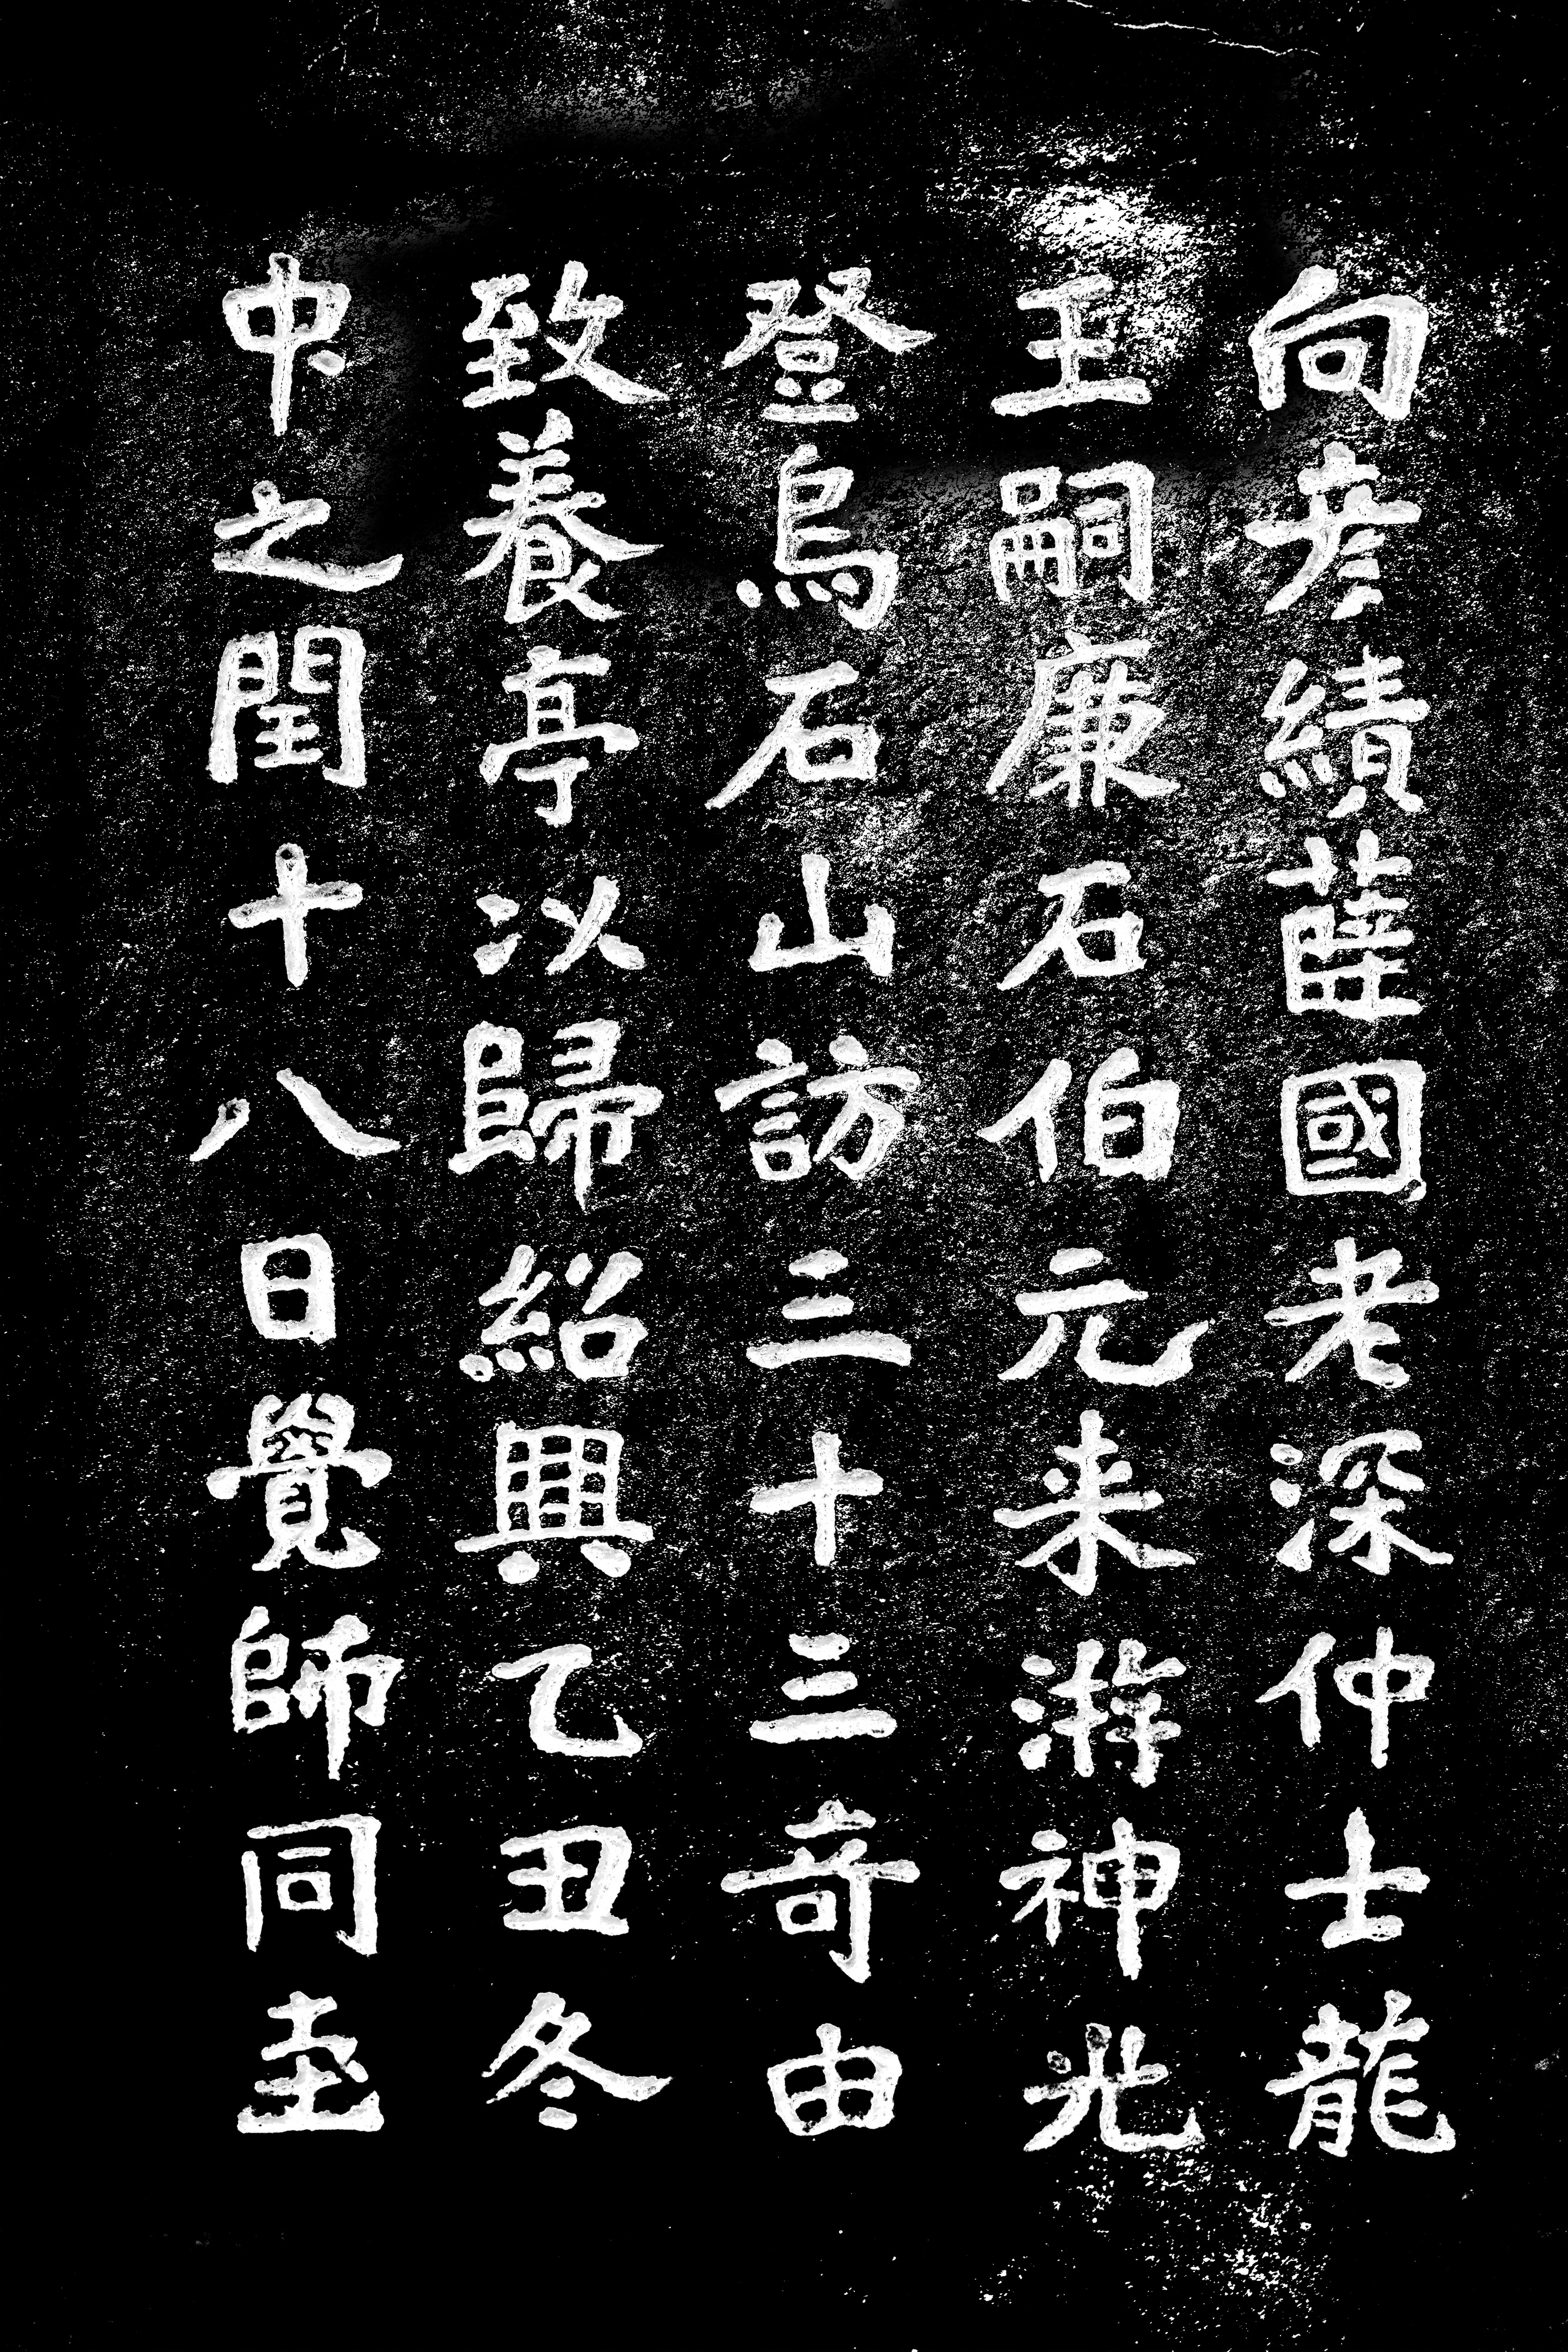 向彦績薛國老深仲士龍
王嗣廉石伯元来游神光
登烏石山訪三十三奇由
致養亭以歸紹興乙丑冬
中之閏十八日覺師同